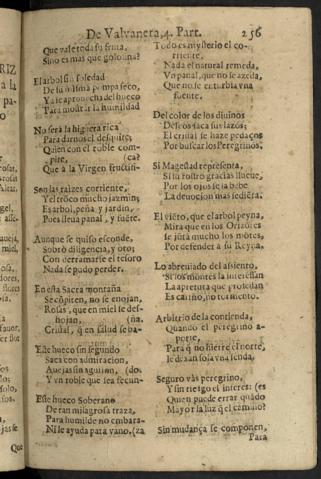 De Valvanera, 4. Part. 256
Que vale toda su fruta,
Sino es mas que golosina?
El arbol su soledad
De su misma pompa seco,
Y a se aprovecha del hueco
Para mostrar la humildad
No será la higuera rica
Para darnos el desquite;
Quien con el roble com-
pite, (ca?
Que a la Virgen fructifi-
Son las raizes corriente,
Y el troco mucho jazmin;
Es arbol, peña, y jardin,
Pues lleua panal, y fuẽte.
Aunque se quiso esconde,
Sobró diligencia, y oto;
Con derramarse el tesoro
Nada se pudo perder.
En esta Sacra montaña
Se cõpiten, no se enojan,
Rosas, que en miel se des-
hojan, (ña.
Cristal, q̃ en salud se ba-
Este hueco sin segundo
Saca con admiracion,
Auejas sin aguijon, (do
Y vn roble que sea fecun-
Este hueco Soberano
De tan milagrosa traza,
Para humilde no embara-
Ni le ayuda para vano, (za
Todo es mysterio el co-
rriente,
Nada el natural remeda,
Vn panal, que no se azeda,
Que no se enturbia vna
fuente.
Del color de los diuinos
Deseos saca sus lazos;
El cristal se haze pedaços
Por buscar los Peregrinos,
Si Magestad representa,
Si su rostro gracias llueue,
Por los ojos se la bebe
La deuocion mas sediẽta.
El viẽto, que el arbol peyna,
Mira que en los Orizõtes
Se jũtã mucho los mõtes,
Por defender a su Reyna,
Lo abreuiado del assiento,
Si los montes la interessan
La apretura que professan
Es cariño, no tormento.
Arbitrio de la contienda,
Quando el peregrino a-
porte,
Para q̃ no hierre el norte,
le dexan sola vna senda,
Seguro vàs peregrino,
Y sin riesgo el interes: (es
Quien puede errar quãdo
Mayor la luz q̃ el camino?
Sin mudança se componen,
Para